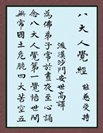 八大人覺經
後漢沙門安世高譯
為佛弟子常於晝夜至心誦
念八大人覺第一覺悟世間
無常國土危脆四大苦空五